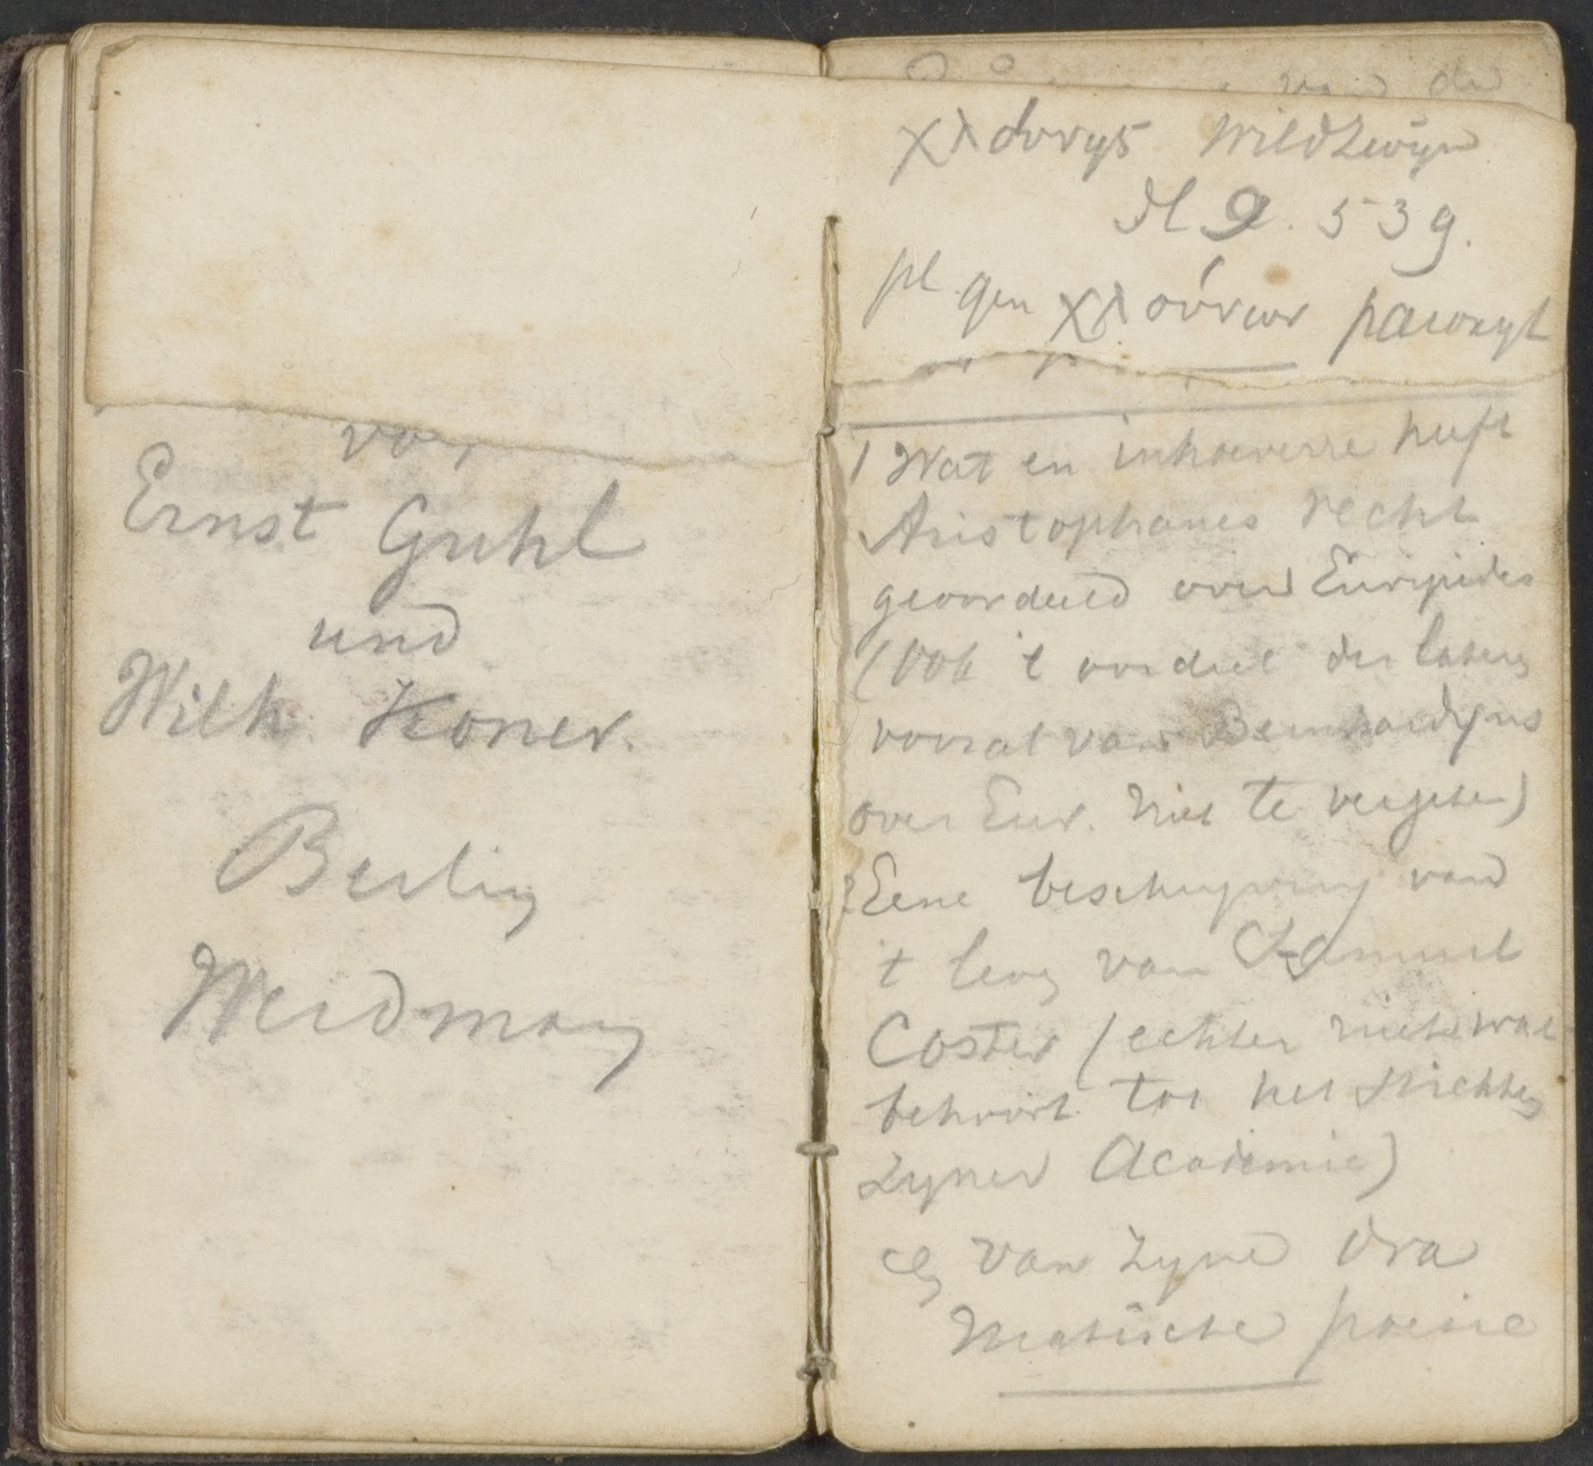 von
Ernst Guhl
und
Wilh. Koner.
Berlin
Weidman
van de
χλούνης Wildzwijn
Il 9. 539.
pl gen χλούνων paroxyt
1 Wat en inhoeverre heeft
Aristophanes recht
geoordeeld over Euripides
(Ook 't oordeel der lateren
vooral van Bernhardyus
over Eur. niet te vergeten)
2 Eene beschrijving van
't leven van Samuel
Coster (echter niet wat
behoort tot het stichten
Zyner Academie)
en van Zyne dra
matische poesie